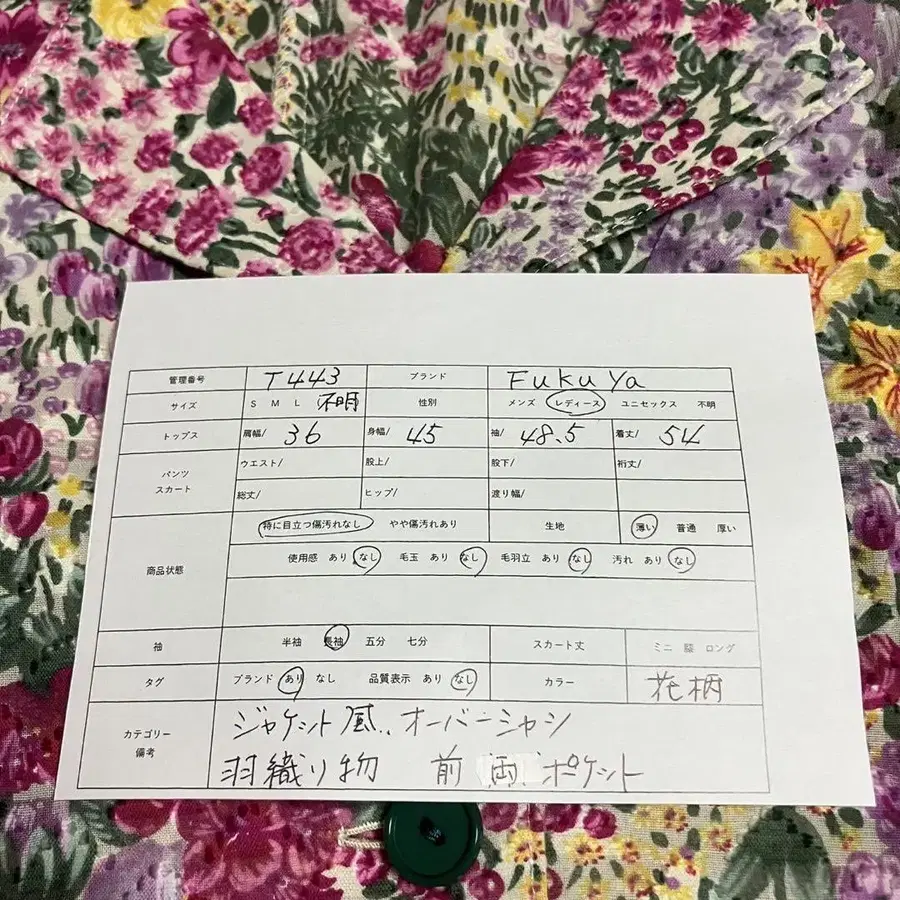 管理番号 T443 ブランド Fukuya
サイズ S M L 不明 性別 メンズ レディース ユニセックス 不明
トップス 肩幅/ 36 身幅/ 45 袖/ 48.5 着丈/ 54
パンツ スカート ウエスト/ 股上/ 股下/ 裄丈/
総丈/ ヒップ/ 渡り幅/
商品状態 特に目立つ傷汚れなし やや傷汚れあり 生地 薄い 普通 厚い
使用感 あり なし 毛玉 あり なし 毛羽立 あり なし 汚れ あり なし
袖 半袖 長袖 五分 七分 スカート丈 ミニ 膝 ロング
タグ ブランド あり なし 品質表示 あり なし カラー 花柄
カテゴリー 備考 ジャケット風、オーバーシャツ
羽織り物 前 両 ポケット